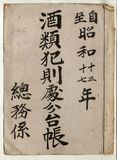 自至昭和十三十七年
酒類犯則處分台帳
總務係